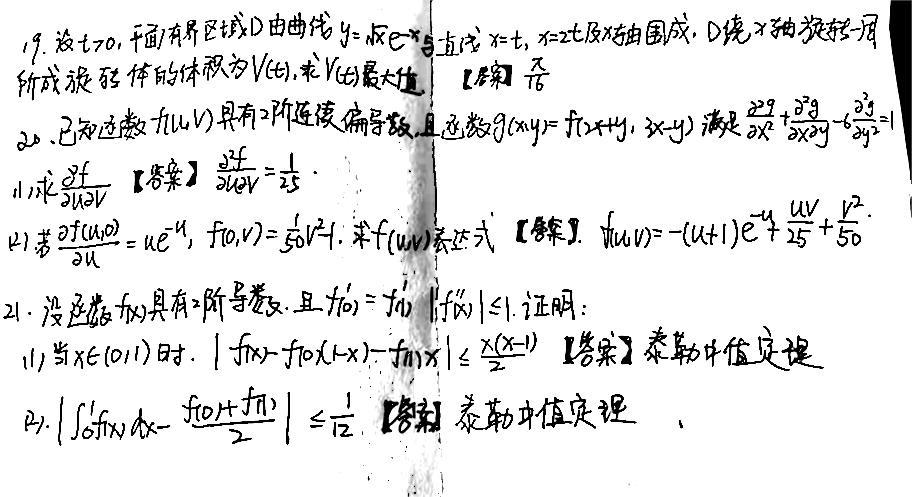 19. 设t>0, 平面有界区域D由曲线 y=√x e^{-x}与直线 x=t, x=2t及x轴围成, D绕x轴旋转一周
所成旋转体的体积为V(t), 求V(t)最大值 【答案】 π/16
20. 已知函数f(u,v)具有2阶连续偏导数, 且函数g(x,y)=f(2x+y, 3x-y) 满足 ∂²g/∂x²+∂²g/∂x∂y-6∂²g/∂y²=1
(1)求 ∂²f/∂u∂v 【答案】 ∂²f/∂u∂v=1/25.
(2)若 ∂f(u,0)/∂u=ue^{-u}, f(0,v)=1/50 v²-1. 求f(u,v)表达式 【答案】. f(u,v)=-(u+1)e^{-u}+uv/25+v²/50.
21. 设函数f(x)具有2阶导数. 且f'(0)=f'(1) |f''(x)|≤1. 证明:
(1)当x∈(0,1)时. |f(x)-f(0)(1-x)-f(1)x|≤x(x-1)/2 【答案】泰勒中值定理
(2). |∫₀¹f(x)dx-(f(0)+f(1))/2|≤1/12. 【答案】泰勒中值定理.